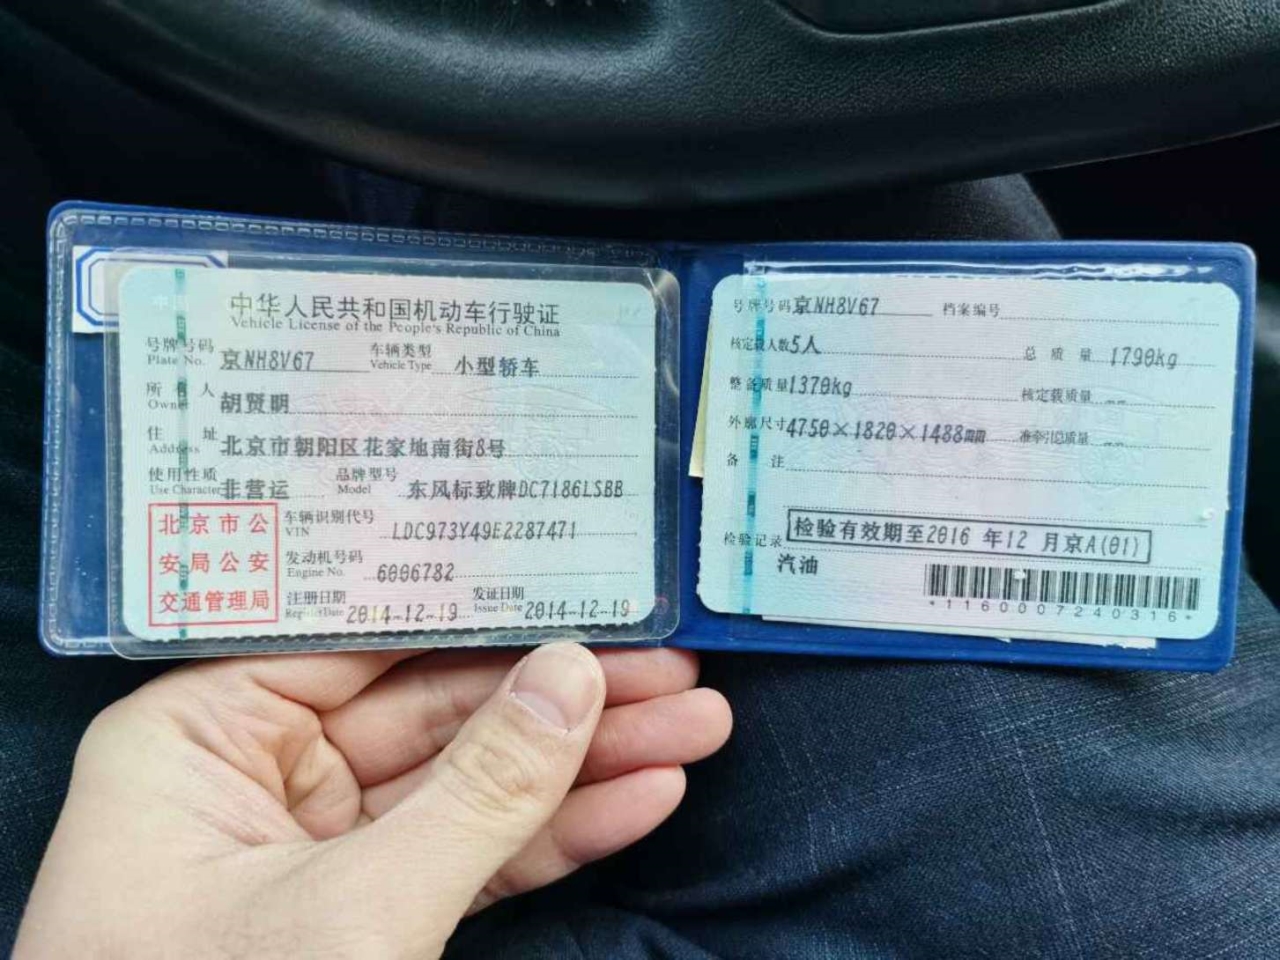 中华人民共和国机动车行驶证
Vehicle License of the People's Republic of China
号牌号码 京NH8V67 车辆类型 小型轿车
Plate No. Vehicle Type
所有人 胡贤明
Owner
住址 北京市朝阳区花家地南街8号
Address
使用性质 非营运 品牌型号 东风标致牌DC7186LSBB
Use Character Model
北京市公
安局公安
交通管理局
车辆识别代号 LDC973Y49E2287471
VIN
发动机号码 6006782
Engine No.
注册日期 2014-12-19 发证日期 2014-12-19
Register Date Issue Date
号牌号码 京NH8V67 档案编号
核定载人数 5人 总质量 1790kg
整备质量 1370kg 核定载质量 --
外廓尺寸 4750×1820×1488mm 准牵引总质量 --
备注
检验记录 检验有效期至2016年12月京A(01)
汽油
*1160007240316*